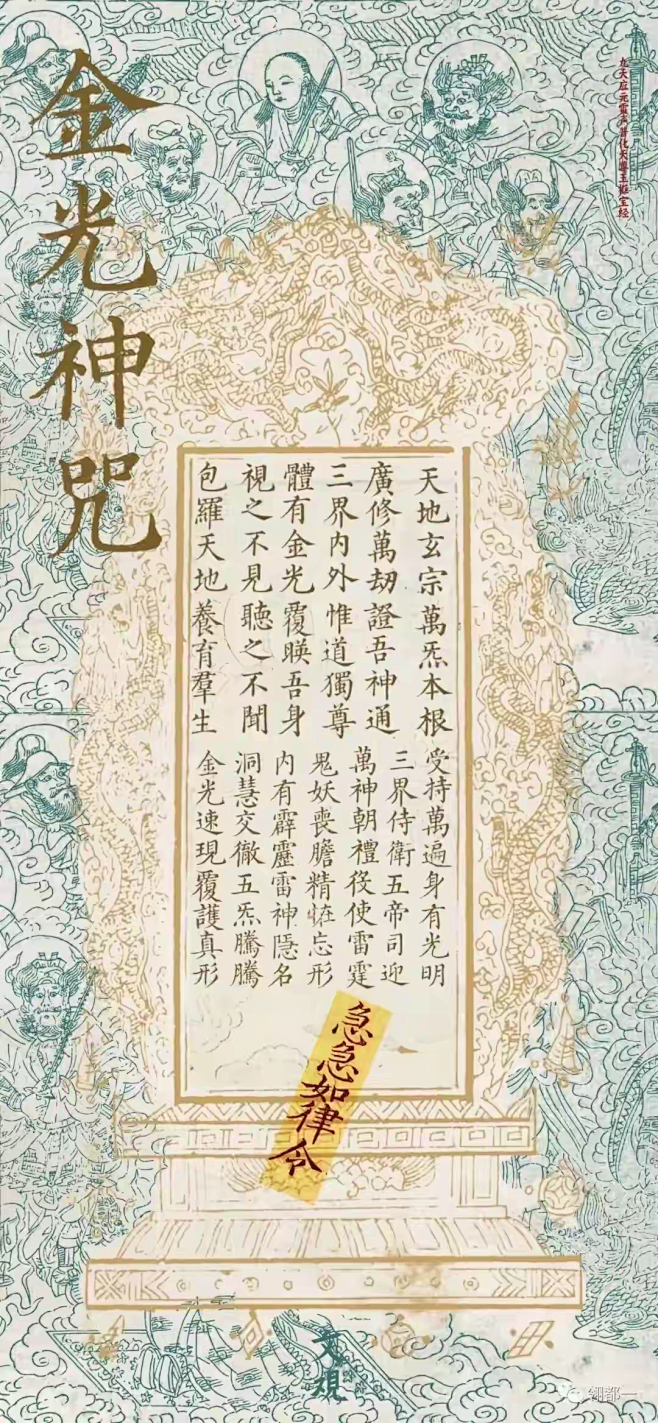 九天应元雷声普化天尊玉枢宝经
金光神咒
天地玄宗萬炁本根
廣修萬劫證吾神通
三界內外惟道獨尊
體有金光覆暎吾身
視之不見聽之不聞
包羅天地養育羣生
受持萬遍身有光明
三界侍衛五帝司迎
萬神朝禮役使雷霆
鬼妖喪膽精怪忘形
內有霹靂雷神隱名
洞慧交徹五炁騰騰
金光速現覆護真形
急急如律令
翎都一